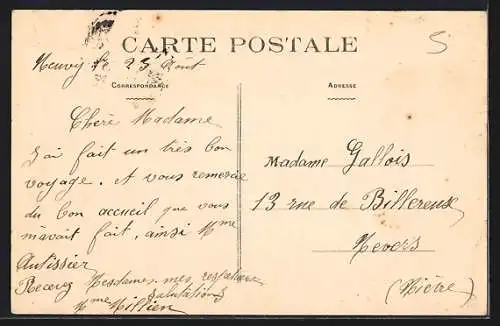 CARTE POSTALE
5
Neuvy le 23 Août
CORRESPONDANCE
ADRESSE
Chère Madame
J'ai fait un très bon
voyage. A vous remercie
du bon accueil que vous
m'avait fait, ainsi Mme
Autissier
Recevez Mesdames mes respectueuses
salutations
Mme Millien
Madame Gallois
13 rue de Billereuse
Nevers
(Nièvre)